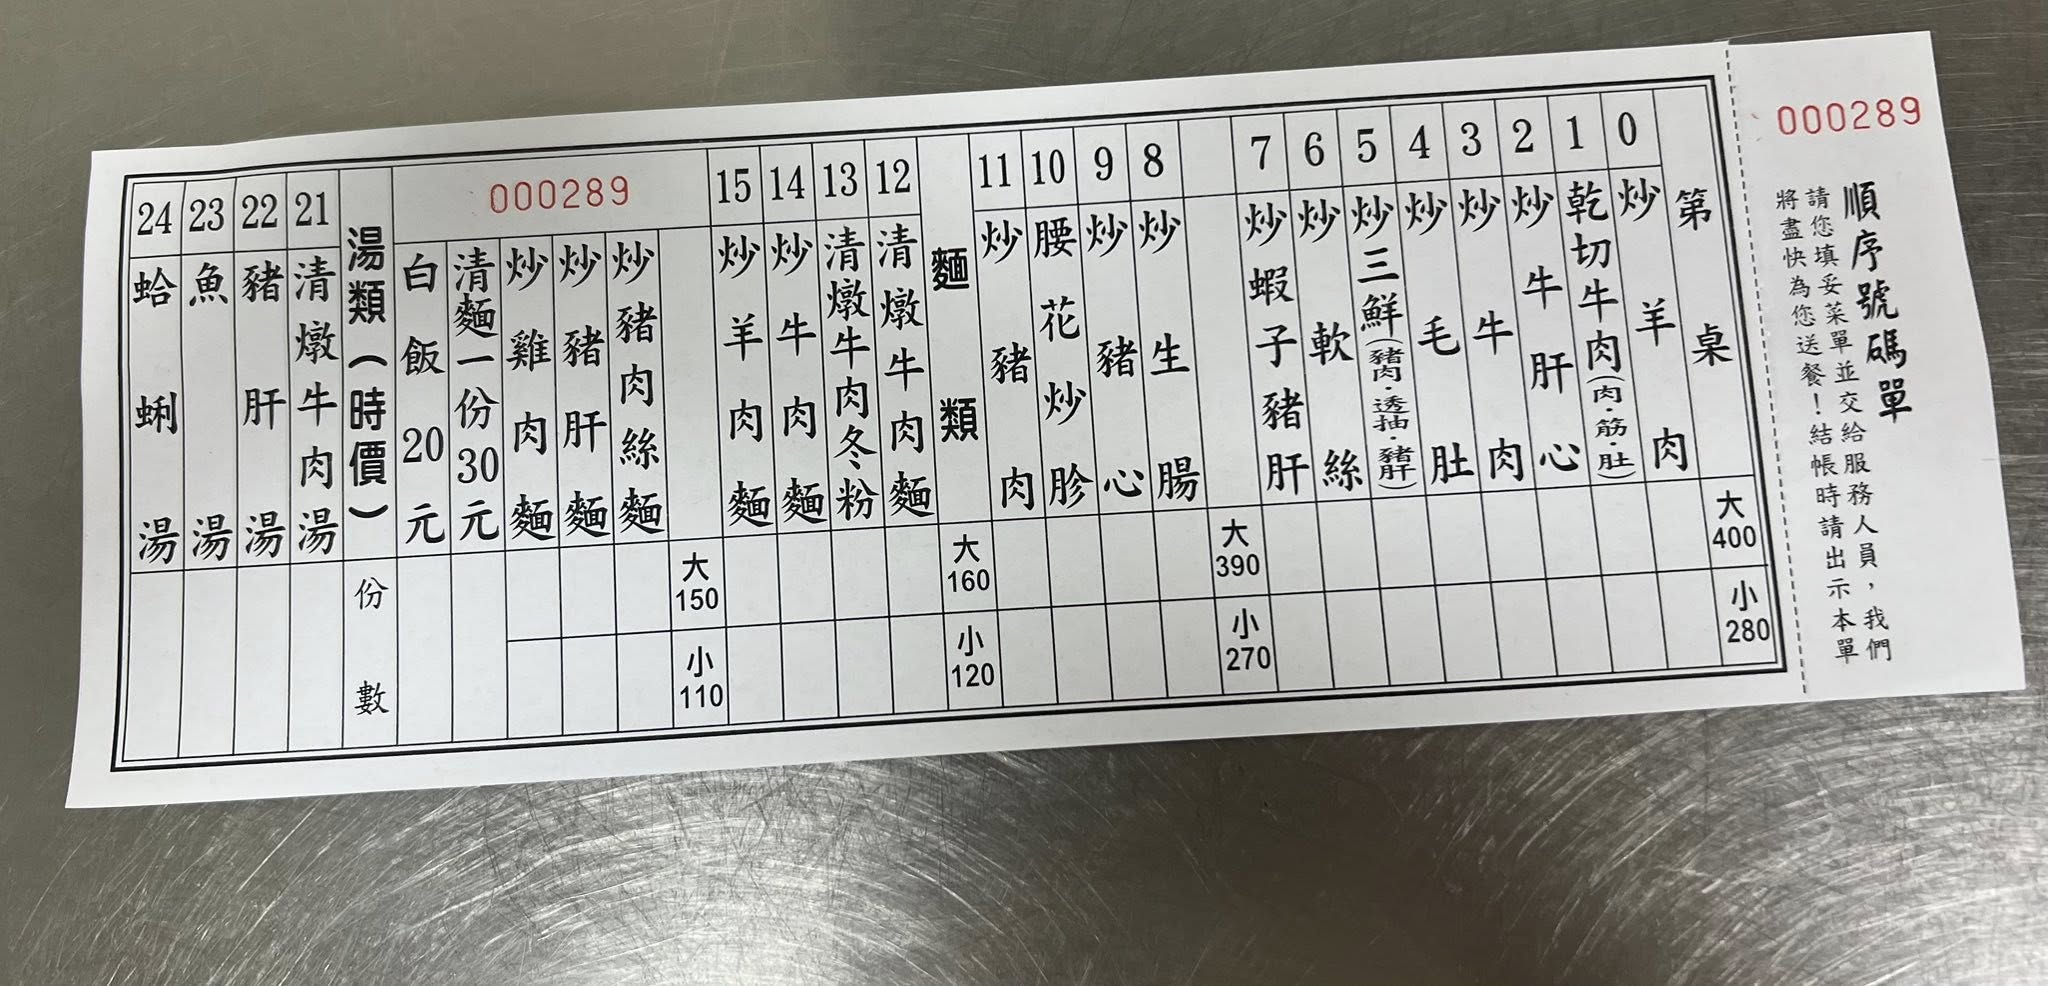 000289
順序號碼單
請您填妥菜單並交給服務人員，我們
將盡快為您送餐！結帳時請出示本單
第桌
大400
小280
0 炒羊肉
1 乾切牛肉(肉·筋·肚)
2 炒牛肝心
3 炒牛肉
4 炒毛肚
5 炒三鮮(豬肉·透抽·豬肝)
6 炒軟絲
7 炒蝦子豬肝
大390
小270
8 炒生腸
9 炒豬心
10 腰花炒胗
11 炒豬肉
麵類
大160
小120
12 清燉牛肉麵
13 清燉牛肉冬粉
14 炒牛肉麵
15 炒羊肉麵
000289
大150
小110
炒豬肉絲麵
炒豬肝麵
炒雞肉麵
清麵一份30元
白飯20元
湯類(時價)
份數
21 清燉牛肉湯
22 豬肝湯
23 魚湯
24 蛤蜊湯